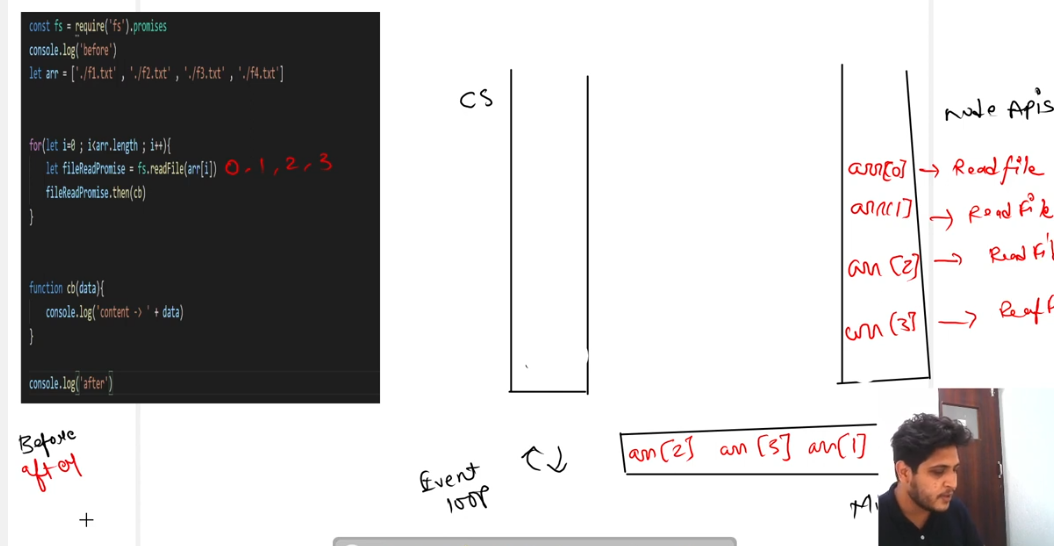 const fs = require('fs').promises
console.log('before')
let arr = ['./f1.txt' , './f2.txt' , './f3.txt' , './f4.txt']
for(let i=0 ; i<arr.length ; i++){
let fileReadPromise = fs.readFile(arr[i]) 0, 1, 2, 3
fileReadPromise.then(cb)
}
function cb(data){
console.log('content -> ' + data)
}
console.log('after')
Before
after
CS
Node APIs
arr[0] → Readfile
arr[1] → ReadFile
arr[2] → Read Fi
arr[3] →
Event
loop
arr[2] arr[3] arr[1]